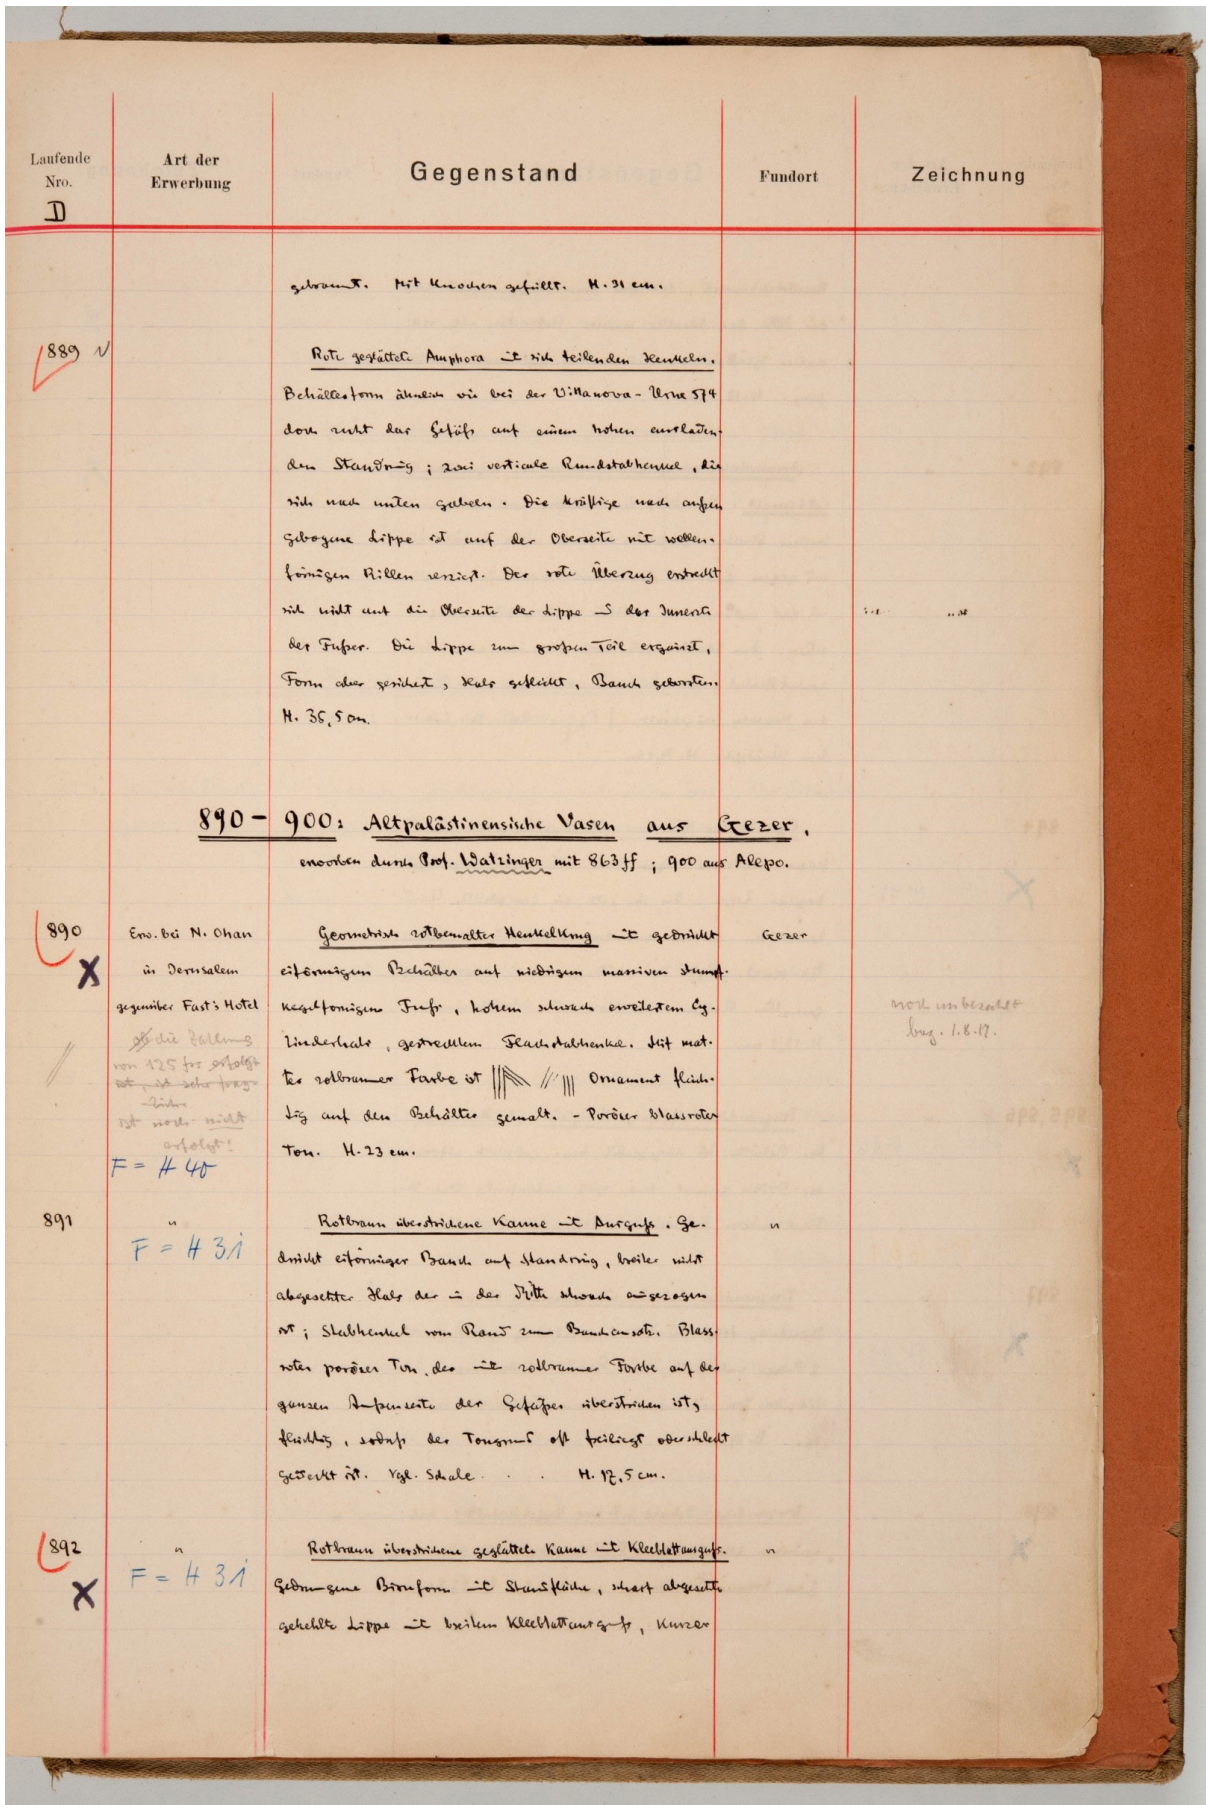 Laufende
Nro.
D
Art der
Erwerbung
Gegenstand
Fundort
Zeichnung
gebrannt. Mit Knochen gefüllt. H. 31 cm.
889
Rote geglättete Amphora mit sich teilenden Henkeln.
Behälterform ähnlich wie bei der Villanova-Urne 574
doch ruht das Gefäß auf einem hohen ausladen-
den Standring; zwei verticale Rundstabhenkel, die
sich nach unten gabeln. Die kräftige nach außen
gebogene Lippe ist auf der Oberseite mit wellen-
förmigen Rillen verziert. Der rote Überzug erstreckt
sich nicht auf die Oberseite der Lippe u das Innere
des Fußes. Die Lippe zum großen Teil ergänzt,
Form aber gesichert, Hals geflickt, Bauch geborsten.
H. 36,5 cm.
890 - 900: Altpalästinensische Vasen aus Gezer.
erworben durch Prof. Watzinger mit 863 ff; 900 aus Alepo.
890
X
Erw. bei N. Ohan
in Jerusalem
gegenüber Fast's Hotel
ob die Zahlung
von 125 frs erfolgt
ist, ist sehr frag-
lich
ist noch nicht
erfolgt!
F = # 40
Geometrisch rotbemalter Henkelkrug mit gedrückt
eiförmigem Behälter auf niedrigem massiven stumpf-
kegelförmigem Fuß, hohem schwach erweitertem Cy-
linderhals, gestrecktem Flachstabhenkel. Mit mat-
ter rotbrauner Farbe ist Ornament flüch-
tig auf den Behälter gemalt. - Poröser blassroter
Ton. H. 23 cm.
Gezer
noch unbezahlt
bez. 1.8.17.
891
"
F = # 31
Rotbraun überstrichene Kanne mit Ausguß. Ge-
drückt eiförmiger Bauch auf Standring, breiter nicht
abgesetzter Hals der in der Mitte schwach eingezogen
ist; Stabhenkel vom Rand zum Bauchansatz. Blass
roter poröser Ton, der mit rotbrauner Farbe auf der
ganzen Außenseite des Gefäßes überstrichen ist,
flüchtig, sodaß der Tongrund oft freiliegt oder schlecht
gedeckt ist. Vgl. Schale . . . H. 17,5 cm.
"
892
X
"
F = # 31
Rotbraun überstrichene geglättete Kanne mit Kleeblattausguß.
Gedrungene Birnform mit Standfläche, scharf abgesetzte
gekehlte Lippe mit breitem Kleeblattausguß, kurzer
"